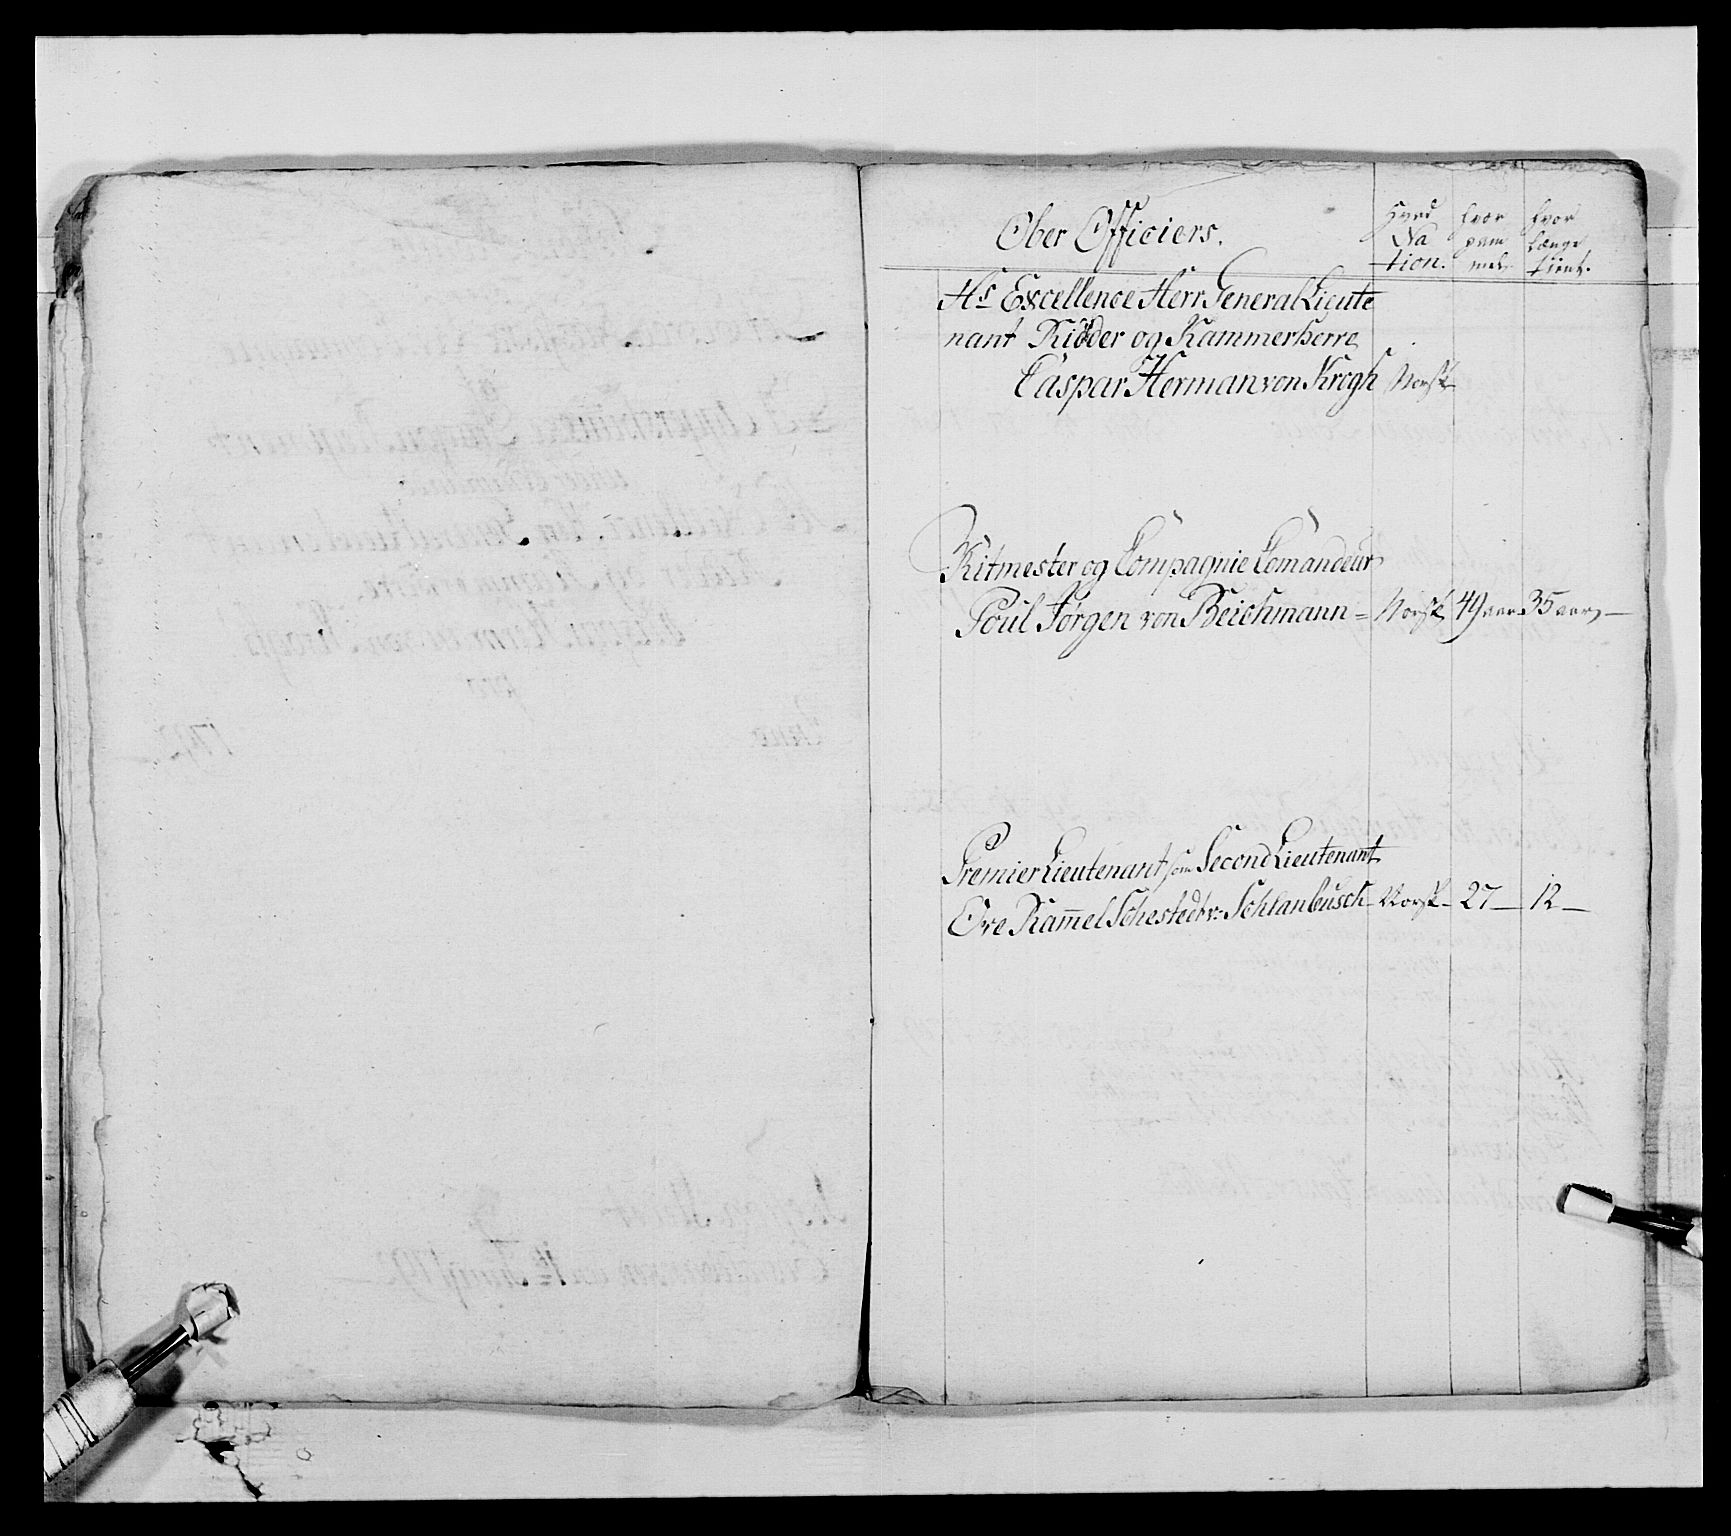 Ober Officiers.
Hvad Na tion. hvor gam mel hvor længe tient.
Hs Excellence Herr General Lieute
nant Ridder og Kammerherre
Caspar Herman von Krogh Norsk
Ritmester og Compagnie Comandeur
Poul Jørgen von Beichmann = Norsk 49 aar 35 aar —
Premier Lieutenant som Second Lieutenant
Ove Ramel Schestedt v: Schlanbusch Norsk - 27 — 12 —